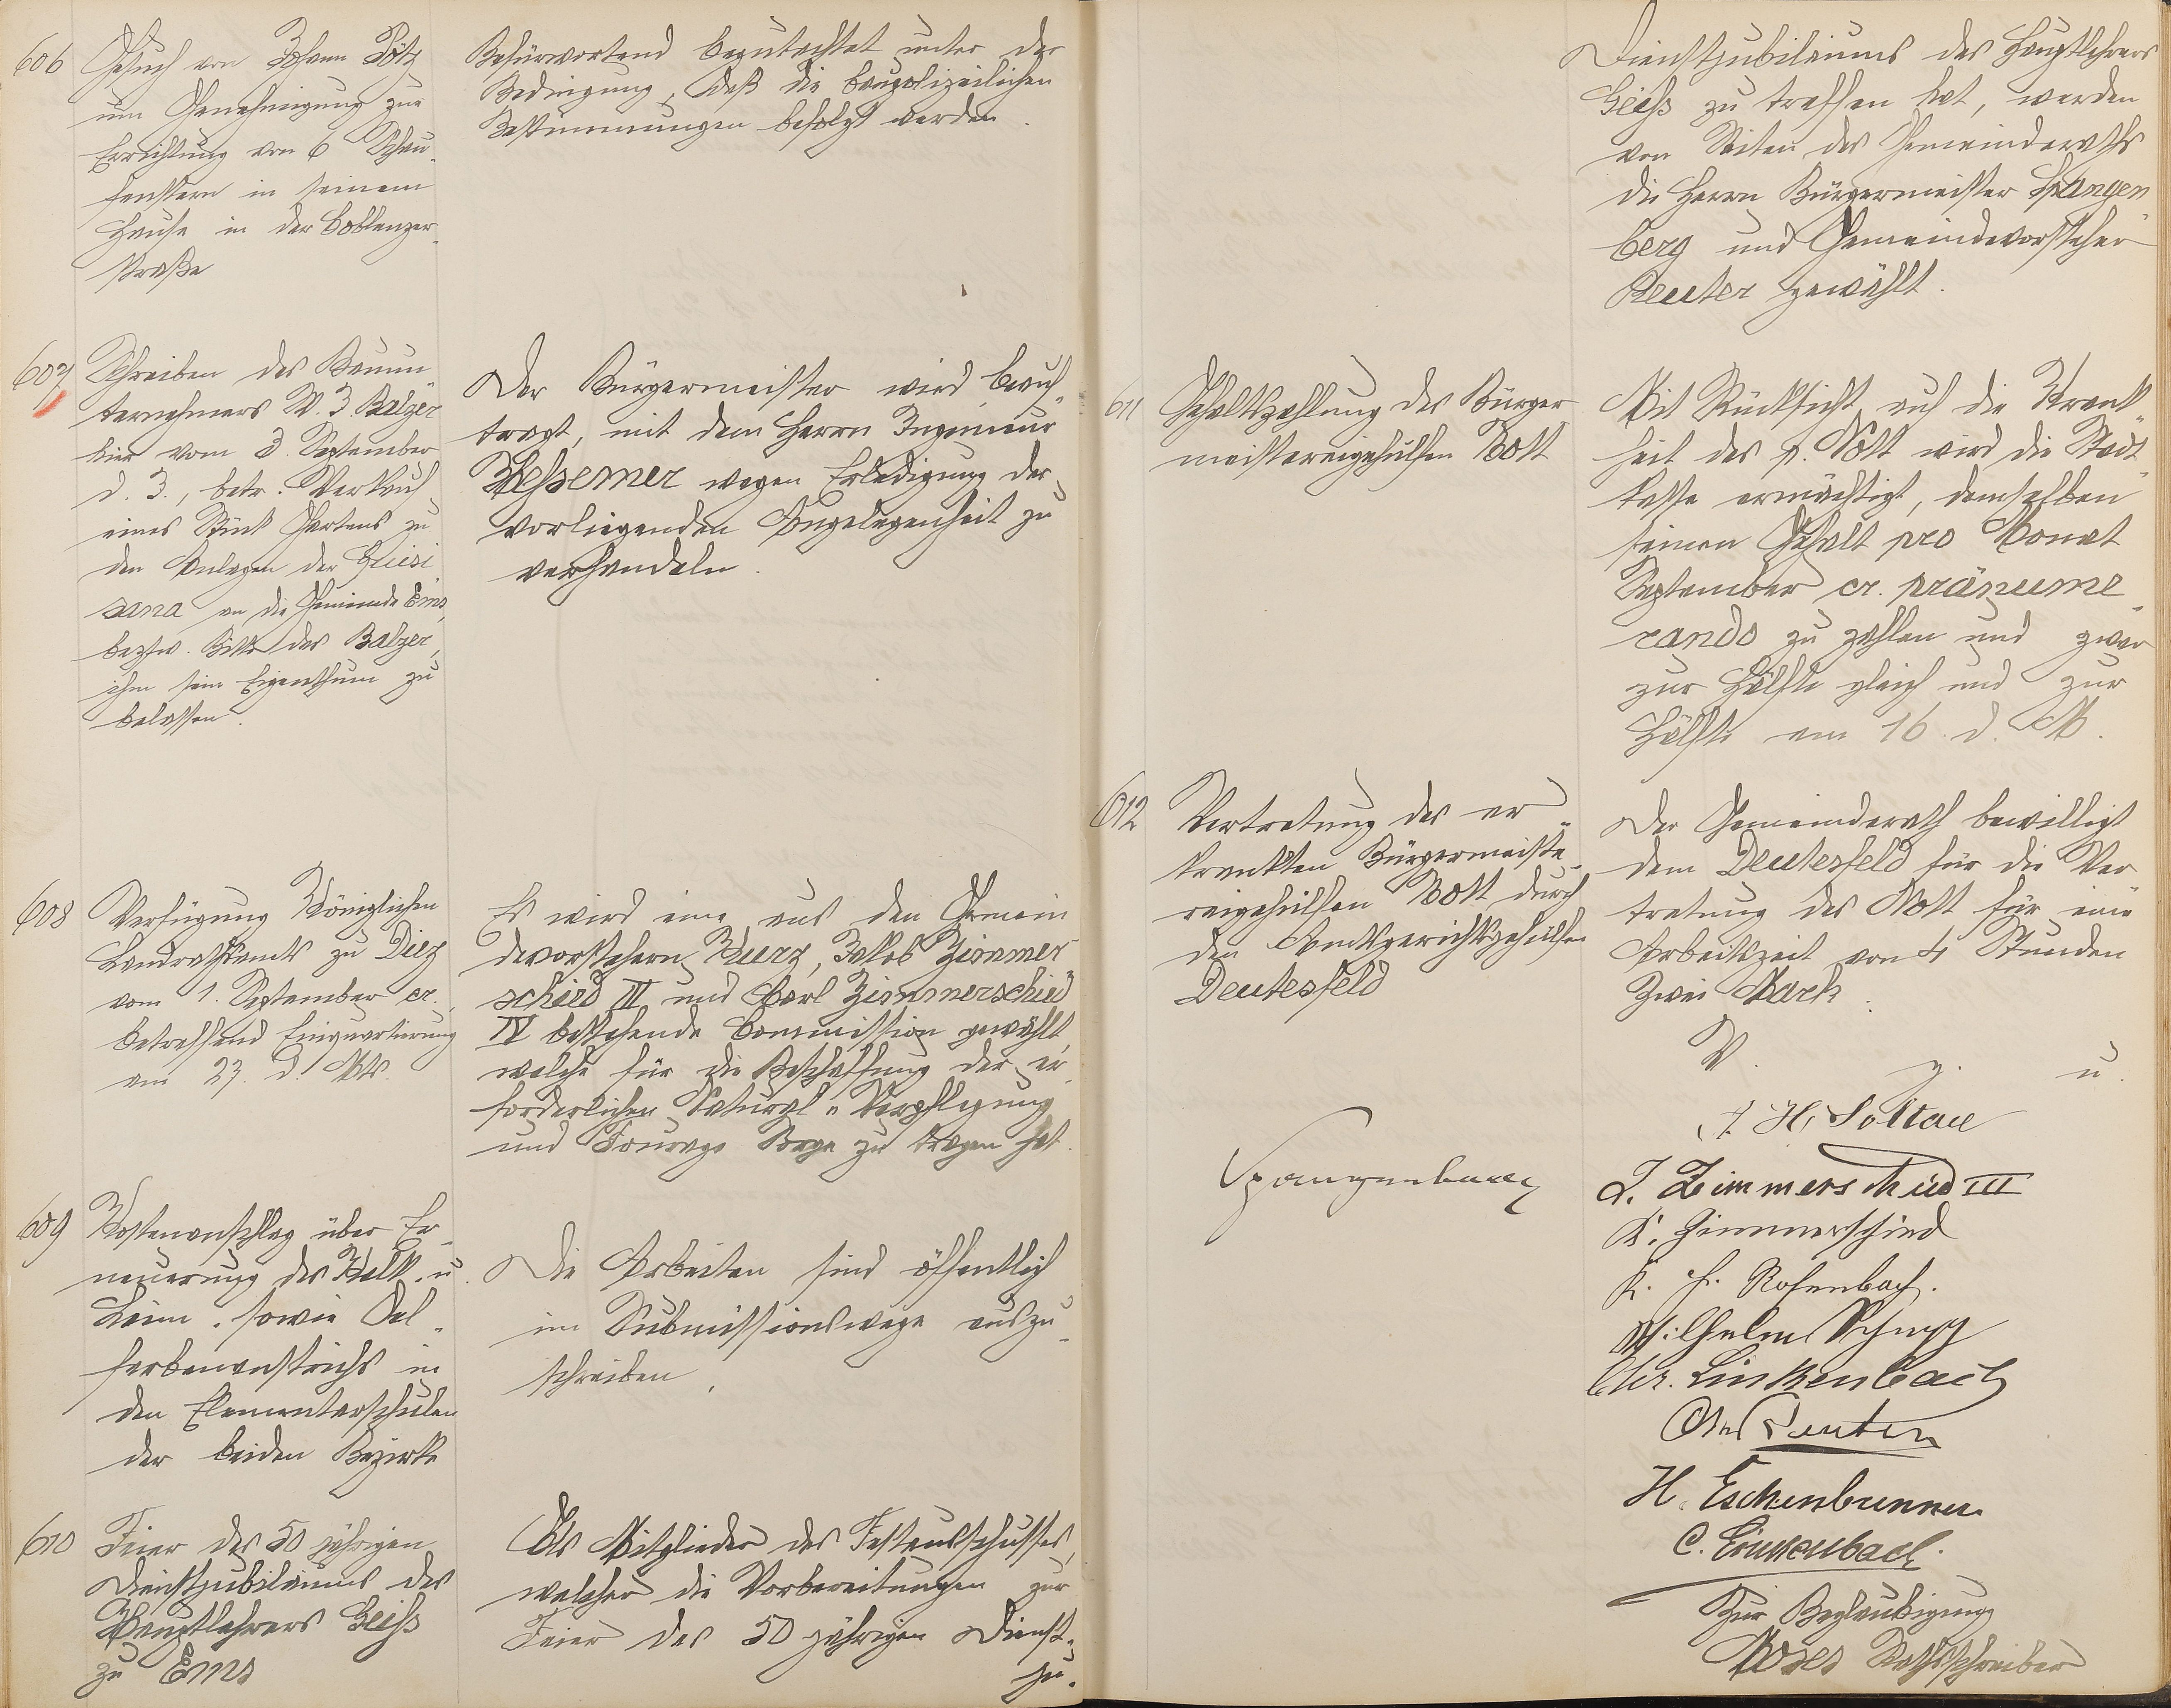 606
Gesuch von Johann Pötz
um Genehmigung zur
Errichtung von 6 Schau-
fenstern in seinem
Hause in der Coblenzer-
straße
Befürwortend begutachtet unter der
Bedingung, daß die baupolizeilichen
Bestimmungen befolgt werden.
607
Schreiben des Bauun
ternehmers W. J. Balzer
hier vom 3. September
d. J., betr. Verkauf
eines Stück Gartens zu
den Anlagen der
an die Gemeinde Ems,
beztw. Bitte des Balzer,
ihm sein Eigenthum zu
belassen.
Der Bürgermeister wird beauf-
tragt, mit dem Herrn Ingenieur
Hessemer wegen Erledigung der
vorliegenden Angelegenheit zu
verhandeln.
608
Verfügung Königlichen
Landrathsamts zu Diez
vom 1. September cr.,
betreffend Einquartierung
am 23. d. Mts.
Es wird eine aus den Gemein
devorstehern Kurz, Jakob Zimmer
schied III und Carl Zimmerschied
IV bestehende Commission gewählt,
welche für die Beschaffung der er-
forderlichen Natural-Verpflegung
und Fourage Sorge zu tragen hat.
609
Kostenanschlag über Er-
neuerung des Kalk- u.
Leim- sowie Oel-
farbenanstrichs in
den Elementarschulen
der beiden Bezirke
Die Arbeiten sind öffentlich
im Submissionswege auszu-
schreiben.
610
Feier des 50 jährigen
Dienstjubiläums des
Hauptlehrers Geiß
zu Ems
Als Mitglieder des Festausschusses,
welcher die Vorbereitungen zur
Feier des 50 jährigen Dienst-
ju-
Dienstjubiläums des Hauptlehrers
Geiß zu treffen hat, werden
von Seiten des Gemeinderaths
die Herrn Bürgermeister Spangen-
berg und Gemeindevorsteher
Reuter gewählt.
611
Gehaltszahlung des Bürger
meistereigehülfen Nott
Mit Rücksicht auf die Krank-
heit des p. Nott wird die Stadt-
kasse ermächtigt, demselben
seinen Gehalt pro Monat
September cr. pränume-
rando zu zahlen und zwar
zur Hälfte gleich und zur
Hälfte am 16. d. M.
612
Vertretung des er-
krankten Bürgermeiste-
reigehülfen Nott durch
den Amtsgerichtsgehülfen
Deutesfeld
Der Gemeinderath bewilligt
dem Deutesfeld für die Ver
tretung des Nott für eine
Arbeitszeit von 4 Stunden
Zwei Mark.
V. g. u.
Spangenberg
A. H. Soltau
J. Zimmerschied III
K. Zimmerschied
K. F. Rosenbach.
Wilhelm Schupp
Chr. Linkenbach
Reuter
H. Eschenbrenner
C. Linkenbach.
Zur Beglaubigung
Moses Rathsschreiber